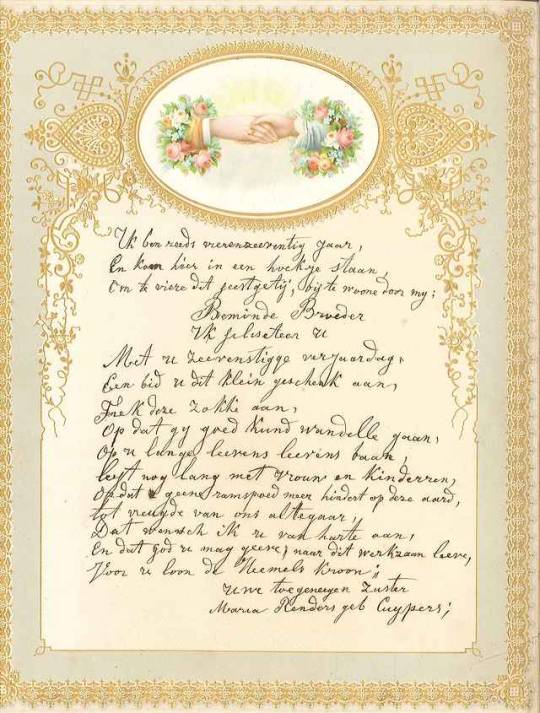 Ik ben reeds vierenzeeventig jaar,
En kom hier in een hoekje staan,
Om te viere dit feestgetij, bij te woone door my;
Beminde Broeder
Ik feliseteer u
Met u zeevenstigge verjaardag,
Een bid u dit klein geschenk aan,
Trek deze zokke aan,
Op dat gy goed kund wandelle gaan,
Op u lange leevens leevens baan,
leeft nog lang met vrouw en Kinderren,
Opdat u geene ramspoed meer hindert op deze aard,
tot vreugde van ons altegaar,
Dat wensch ik u van harte aan,
En dat god u mag geeve, naar dit werkzaam leeve,
Voor u loon de Heemels kroon;
uwe toegeneegen Zuster
Maria Renders geb Cuypers;